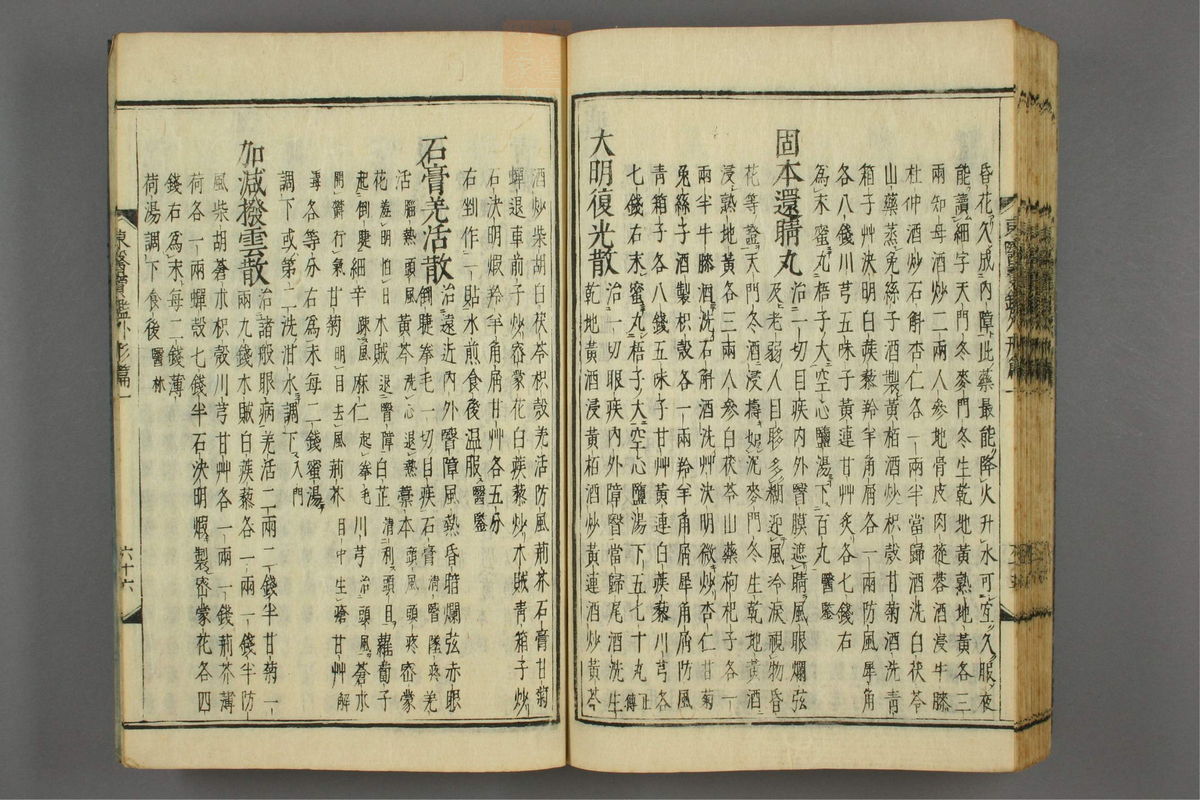 昏花久成內障此藥最能降火升水可宜久服夜
能讀細字天門冬麥門冬生乾地黃熟地黃各三
兩知母酒炒二兩人參地骨皮肉蓯蓉酒浸牛膝
杜仲酒炒石斛杏仁各一兩半當歸酒洗白茯苓
山藥蒸兔絲子酒製黃栢酒炒枳殼甘菊酒洗靑
箱子草決明白蒺藜羚羊角屑各一兩防風犀角
各八錢川芎五味子黃連甘草炙各七錢右
爲末蜜丸梧子大空心鹽湯下百丸醫鑒
固本還睛丸治一切目疾內外瞖膜遮睛風眼爛弦
及老弱人目眵多糊迎風冷淚視物昏
花等證天門冬酒浸擣如泥麥門冬生乾地黃酒
浸熟地黃各三兩人參白茯苓山藥枸杞子各一
兩半牛膝酒洗石斛酒洗草決明微炒杏仁甘菊
兔絲子酒製枳殼各一兩羚羊角屑犀角屑防風
靑箱子各八錢五味子甘草黃連白蒺藜川芎各
七錢右末蜜丸梧子大空心鹽湯下五七十丸正傳
大明復光散治一切眼疾內外障瞖當歸尾酒洗生
乾地黃酒浸黃栢酒炒黃連酒炒黃芩
酒炒柴胡白茯苓枳殼羌活防風荊芥石膏甘菊
蟬退車前子炒密蒙花白蒺藜炒木賊靑箱子炒
石決明煆羚羊角屑甘草各五分
右剉作一貼水煎食後溫服醫鑒
石膏羌活散治遠近內外瞖障風熱昏暗爛弦赤眼
倒睫拳毛一切目疾石膏消瞖墜疼羌
活腦熱頭風黃芩洗心退熱藁本頭風頭疼密蒙
花羞明怕日木賊退瞖障白芷淸利頭目蘿蔔子
起倒睫細辛疎風麻仁起拳毛川芎治頭風蒼朮
開鬱行氣甘菊明目去風荊芥目中生瘡甘草解
毒各等分右爲末每二錢蜜湯
調下或第二洗泔水調下入門
加減撥雲散治諸般眼病羌活二兩二錢半甘菊一
兩九錢木賊白蒺藜各一兩一錢半防
風柴胡蒼朮枳殼川芎甘草各一兩一錢荊芥薄
荷各一兩蟬殼七錢半石決明煆製密蒙花各四
錢右爲末每二錢薄
荷湯調下食後醫林
東醫寶鑑外形篇一
六十六